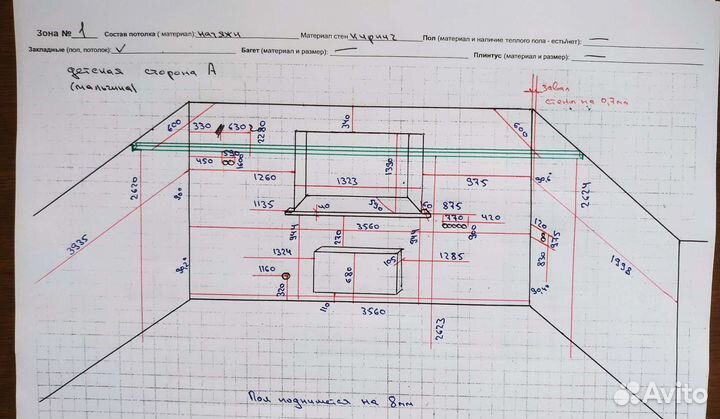 Зона № 1 Состав потолка ( материал): натяжн Материал стен кирпич Пол (материал и наличие теплого пола - есть/нет): —
Закладные (пол, потолок): √ Багет (материал и размер): — Плинтус (материал и размер): —
детская сторона А
(мальчика)
завал
стены на 0,7мм
600
330
630
2280
340
600
590
450
1600
1260
1323
1390
975
2620
900
2624
1135
40
590
875
770
420
3560
944
270
944
900
120
975
3935
1324
105
1285
830
1998
1160
680
320
110
3560
2623
Пол поднимется на 8мм
Avito